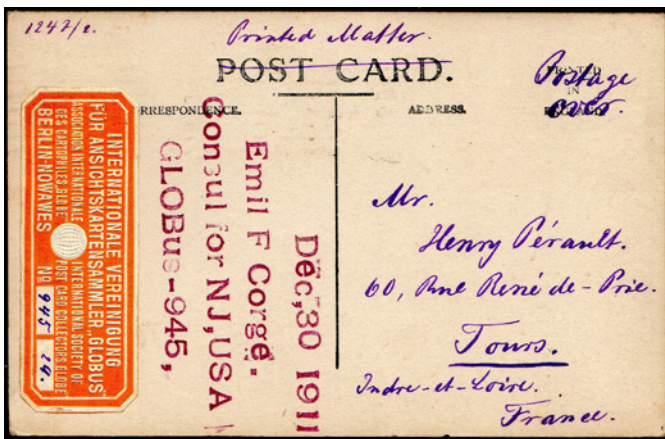 1247/2.
Printed Matter.
POST CARD.
Postage
over.
PRINTED
IN
RRESPONDENCE.
ADDRESS.
INTERNATIONALE VEREINIGUNG
FÜR ANSICHTSKARTENSAMMLER „GLOBUS“
ASSOCIATION INTERNATIONALE INTERNATIONAL SOCIETY OF
DES CARTOPHILES GLOBE POST CARD COLLECTORS GLOBE
BERLIN-NOWAWES No 945 24.
Déc,30 1911
Emil F Corgé.
Consul for NJ,USA
GLOBus-945,
Mr.
Henry Pérault.
60, Rue René de-Prie.
Tours.
Indre-et-Loire.
France.